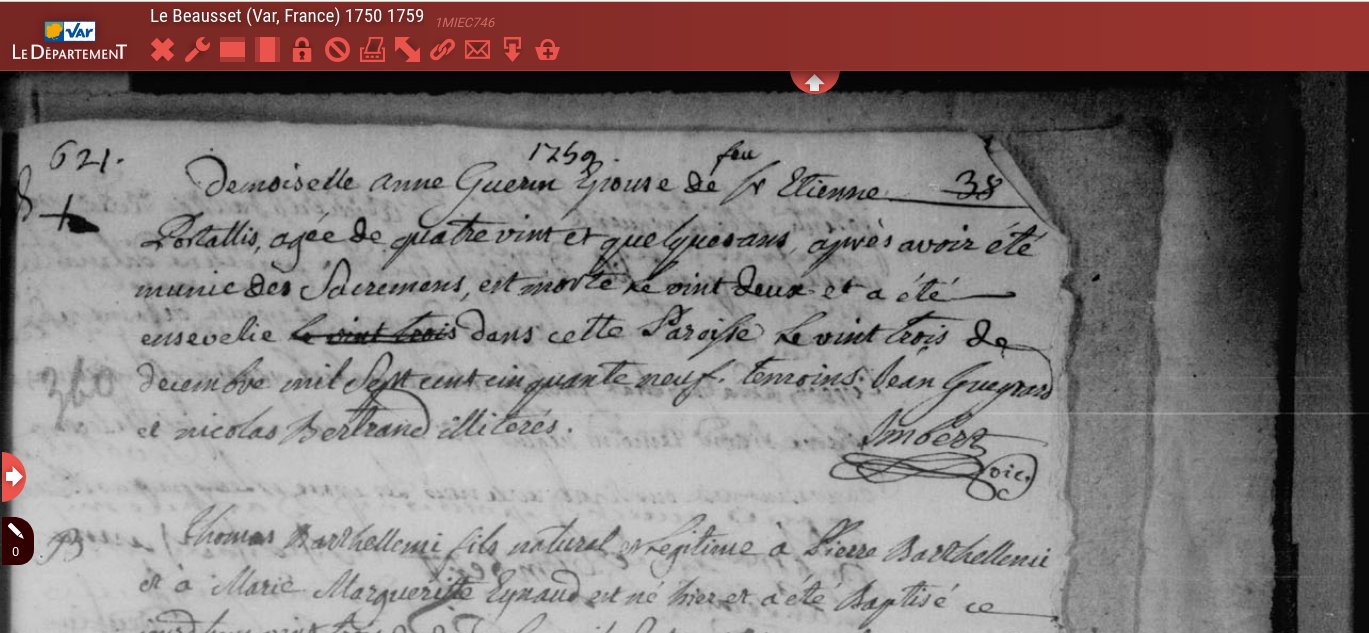 Le Beausset (Var, France) 1750 1759
1MIEC746
VAR
LE DÉPARTEMENT
621.
1759.
feu
Demoiselle anne Guerin Epouse de Sr Etienne
38
Portallis, agée de quatre vint et quelques ans, après avoir été
munie des Sacremens, est morte le vint deux et a été
ensevelie le vint trois dans cette Paroisse le vint trois de
decembre mil Sept cent cinquante neuf. temoins. Jean
360
et nicolas Bertrand illiterés.
Imbert
vic.
Thomas Barthellemi fils naturel et legitime à Pierre Barthellemi
et à Marie Marguerite Eynaud est né hier et a été Baptisé ce
0